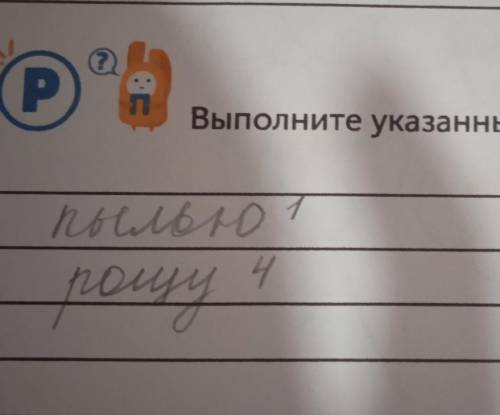 Р ?
П
Выполните указанны
пылью 1
рощу 4